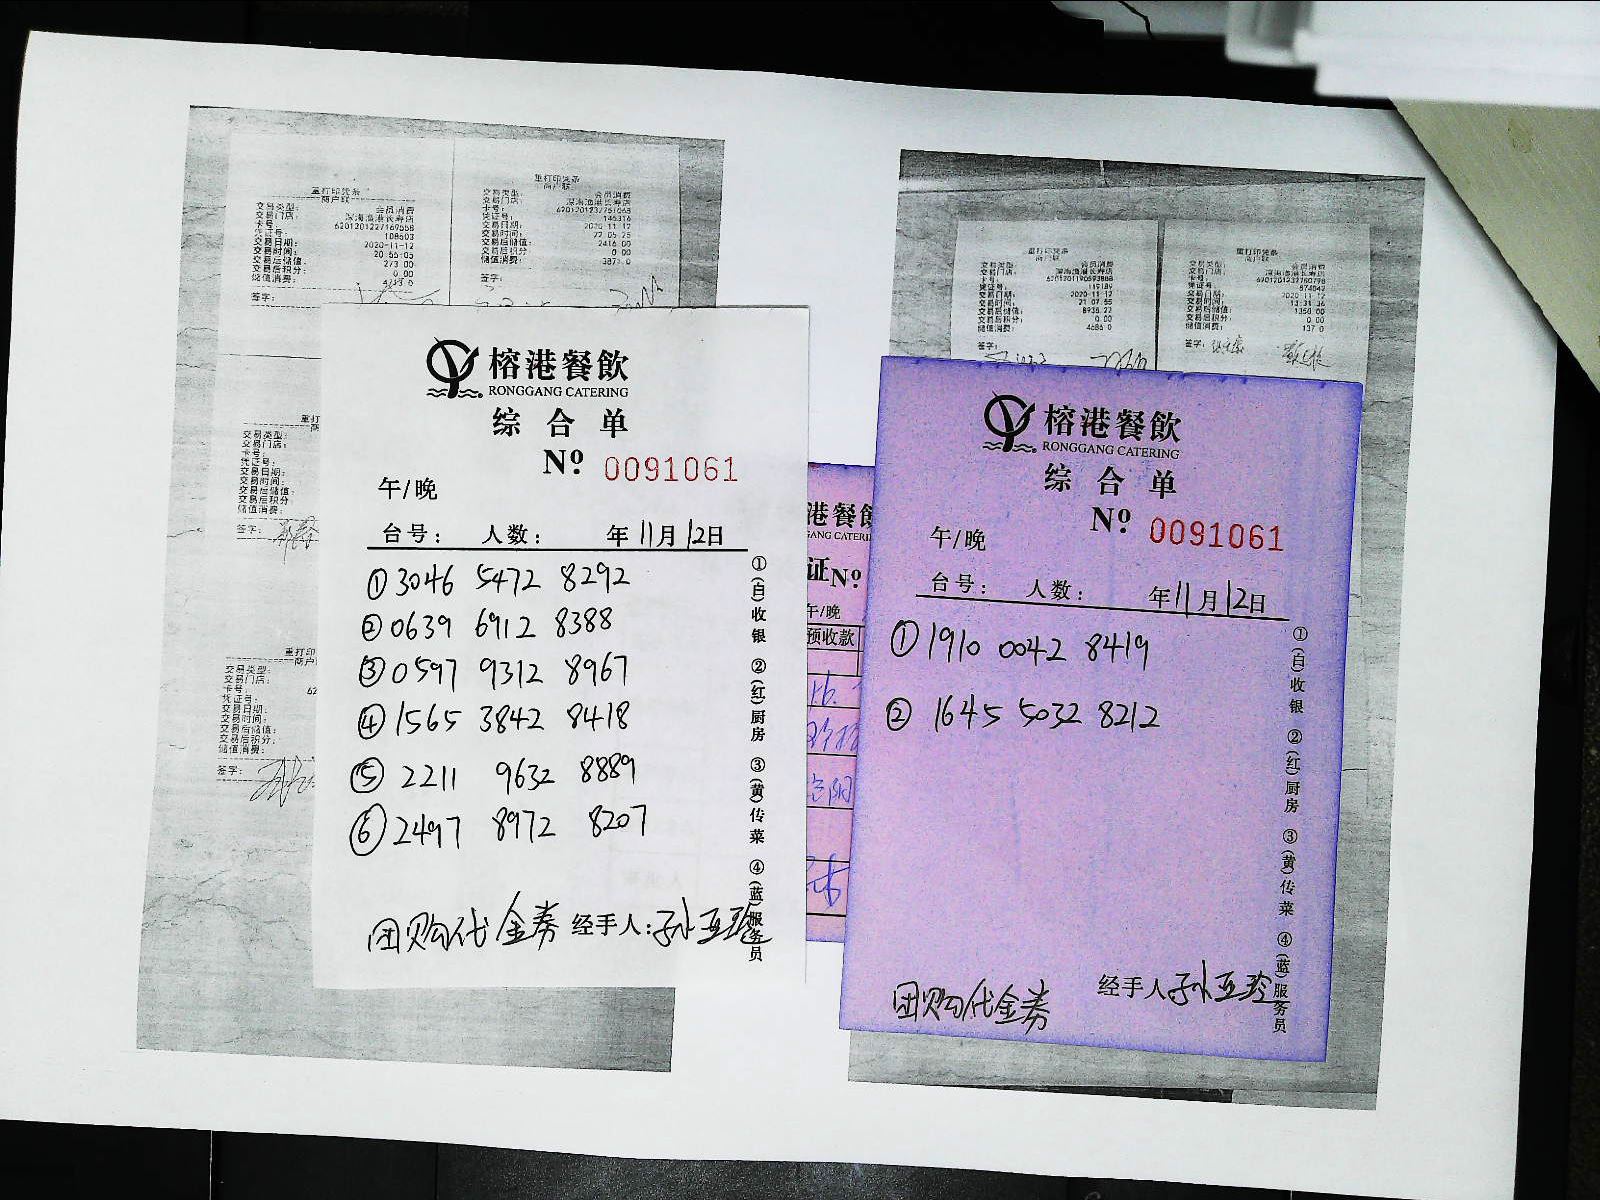 重打印凭条
商户联
交易类型： 会员消费
交易门店： 深海渔港长寿店
卡号： 6201201227169558
凭证号： 108603
交易日期： 2020-11-12
交易时间： 20:55:05
交易后储值： 273.00
交易后积分： 0.00
储值消费：
签字：
重打印凭条
商户联
交易类型： 会员消费
交易门店： 深海渔港长寿店
卡号：
凭证号： 146316
交易日期： 2020-11-12
交易时间： 22:05:25
交易后储值： 2416.00
交易后积分： 0.00
储值消费： 3871.0
签字：
重打印凭条
商户联
交易类型： 会员消费
交易门店： 深海渔港长寿店
卡号：
凭证号： 119189
交易日期： 2020-11-12
交易时间： 21:07:55
交易后储值： 8936.22
交易后积分： 0.00
储值消费： 4686.0
签字：
重打印凭条
商户联
交易类型： 会员消费
交易门店： 深海渔港长寿店
卡号： 6201201232760798
凭证号： 874049
交易日期： 2020-11-12
交易时间： 13:31:36
交易后储值： 1350.00
交易后积分： 0.00
储值消费： 137.0
签字：
重打
商
交易类型：
交易门店：
卡号：
凭证号：
交易日期：
交易时间：
交易后储值：
交易后积分
储值消费：
签字：
重打印
商户
交易类型：
交易门店：
卡号： 62
凭证号：
交易日期：
交易时间：
交易后储值：
交易后积分：
储值消费：
签字：
榕港餐飲
RONGGANG CATERING
综合单
Nº 0091061
午/晚
台号： 人数： 年11月12日
①3046 5472 8292
②0639 6912 8388
③0597 9312 8967
④1565 3842 8418
⑤2211 9632 8889
⑥2497 8972 8207
团购代金券 经手人：孙亚玲
①(白)收银 ②(红)厨房 ③(黄)传菜 ④(蓝)服务员
港餐飲
GANG CATERIN
证Nº
午/晚
预收款
榕港餐飲
RONGGANG CATERING
综合单
Nº 0091061
午/晚
台号： 人数： 年11月12日
①1910 0042 8419
②1645 5032 8212
团购代金券 经手人孙亚玲
①(白)收银 ②(红)厨房 ③(黄)传菜 ④(蓝)服务员